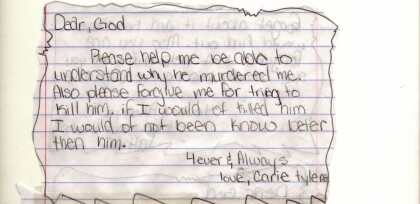 Dear, God
Please help me be able to
understand why he murdered me.
Also please forgive me for tring to
kill him. if I would of killed him
I would of not been know beter
then him.
4ever & Always
love, Carie tylene